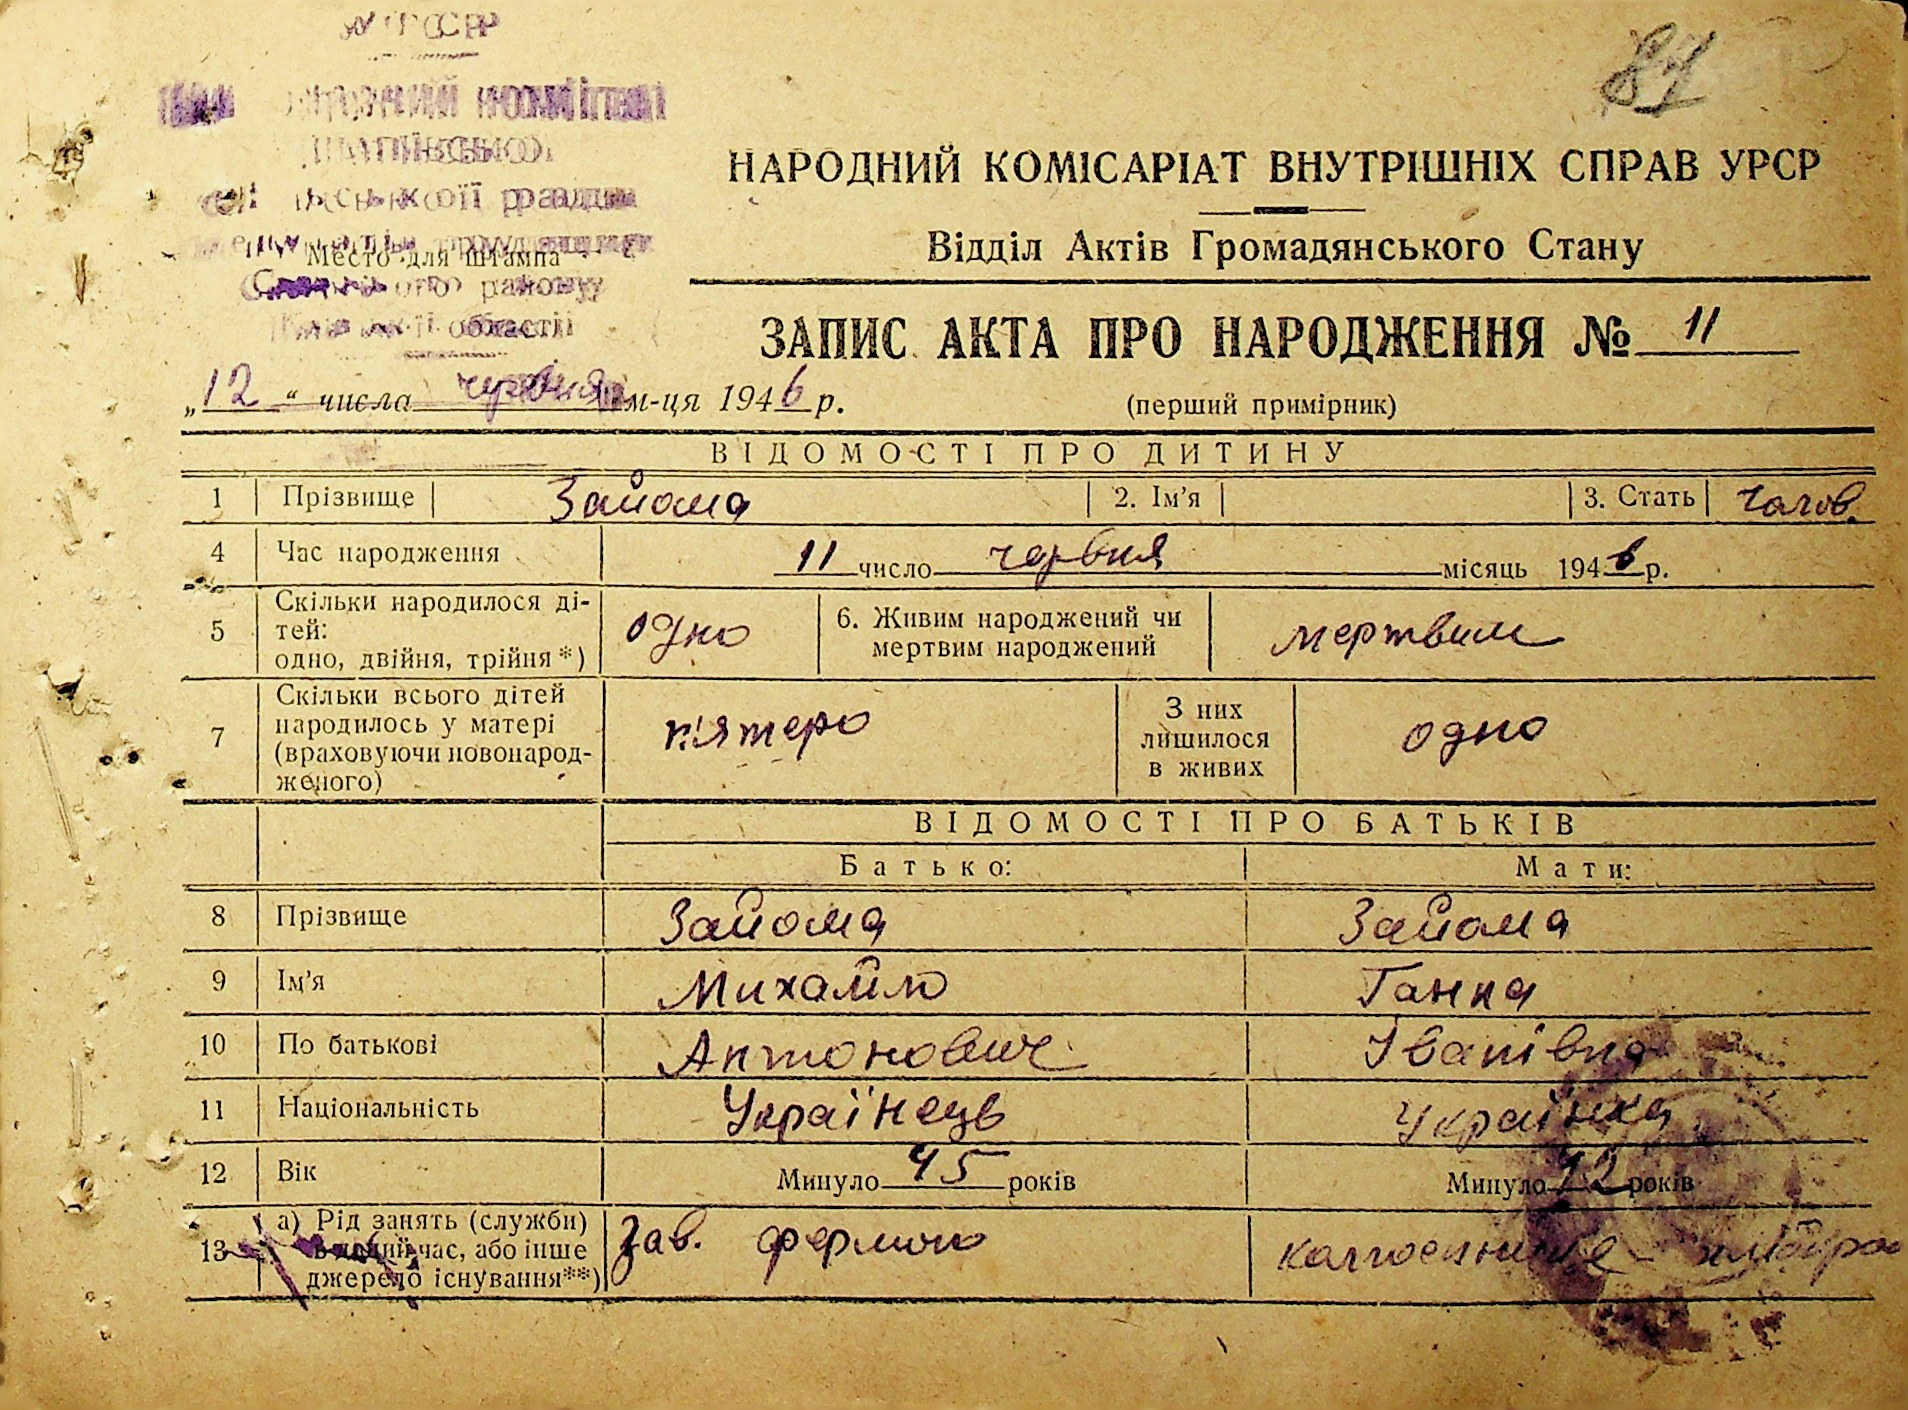 УРСР
87
сільської ради
Место для штампа
району
області
НАРОДНИЙ КОМІСАРІАТ ВНУТРІШНІХ СПРАВ УРСР
Відділ Актів Громадянського Стану
ЗАПИС АКТА ПРО НАРОДЖЕННЯ № 11
„12“ числа червня м-ця 1946 р.
(перший примірник)
ВІДОМОСТІ ПРО ДИТИНУ
1 Прізвище Зайома 2. Ім'я 3. Стать чолов.
4 Час народження 11 число червня місяць 1946 р.
5 Скільки народилося ді-
тей:
одно, двійня, трійня*) одно 6. Живим народжений чи
мертвим народжений мертвим
7 Скільки всього дітей
народилось у матері
(враховуючи новонарод-
женого) п'ятеро З них
лишилося
в живих одно
ВІДОМОСТІ ПРО БАТЬКІВ
Батько: Мати:
8 Прізвище Зайома Зайома
9 Ім'я Михайло Ганна
10 По батькові Антонович Іванівна
11 Національність Українець Українка
12 Вік Минуло 45 років Минуло 42 років
13 а) Рід занять (служби)
в даний час, або інше
джерело існування**) Зав. фермою колгоспниця -